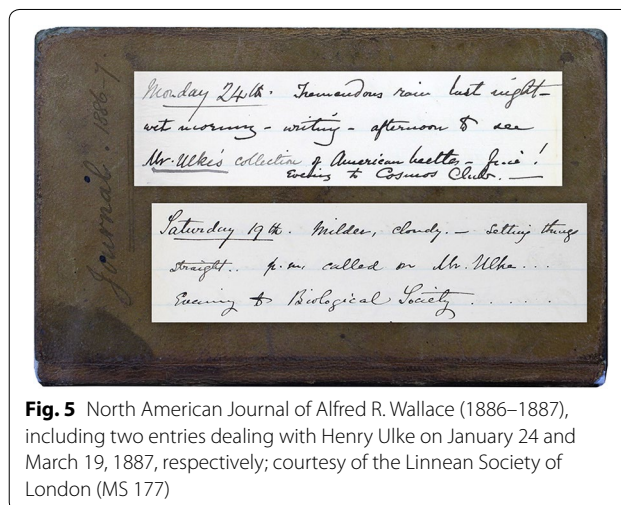 Journal. 1886-7.
Monday 24th. Tremendous rain last night -
wet morning - writing - afternoon to see
Mr. Ulke's collection of American beetles - fine!
Evening to Cosmos Club. —
Saturday 19th. Milder, cloudy. - Setting things
straight.. p.m. called on Mr. Ulke...
Evening to Biological Society ......
Fig. 5 North American Journal of Alfred R. Wallace (1886–1887),
including two entries dealing with Henry Ulke on January 24 and
March 19, 1887, respectively; courtesy of the Linnean Society of
London (MS 177)